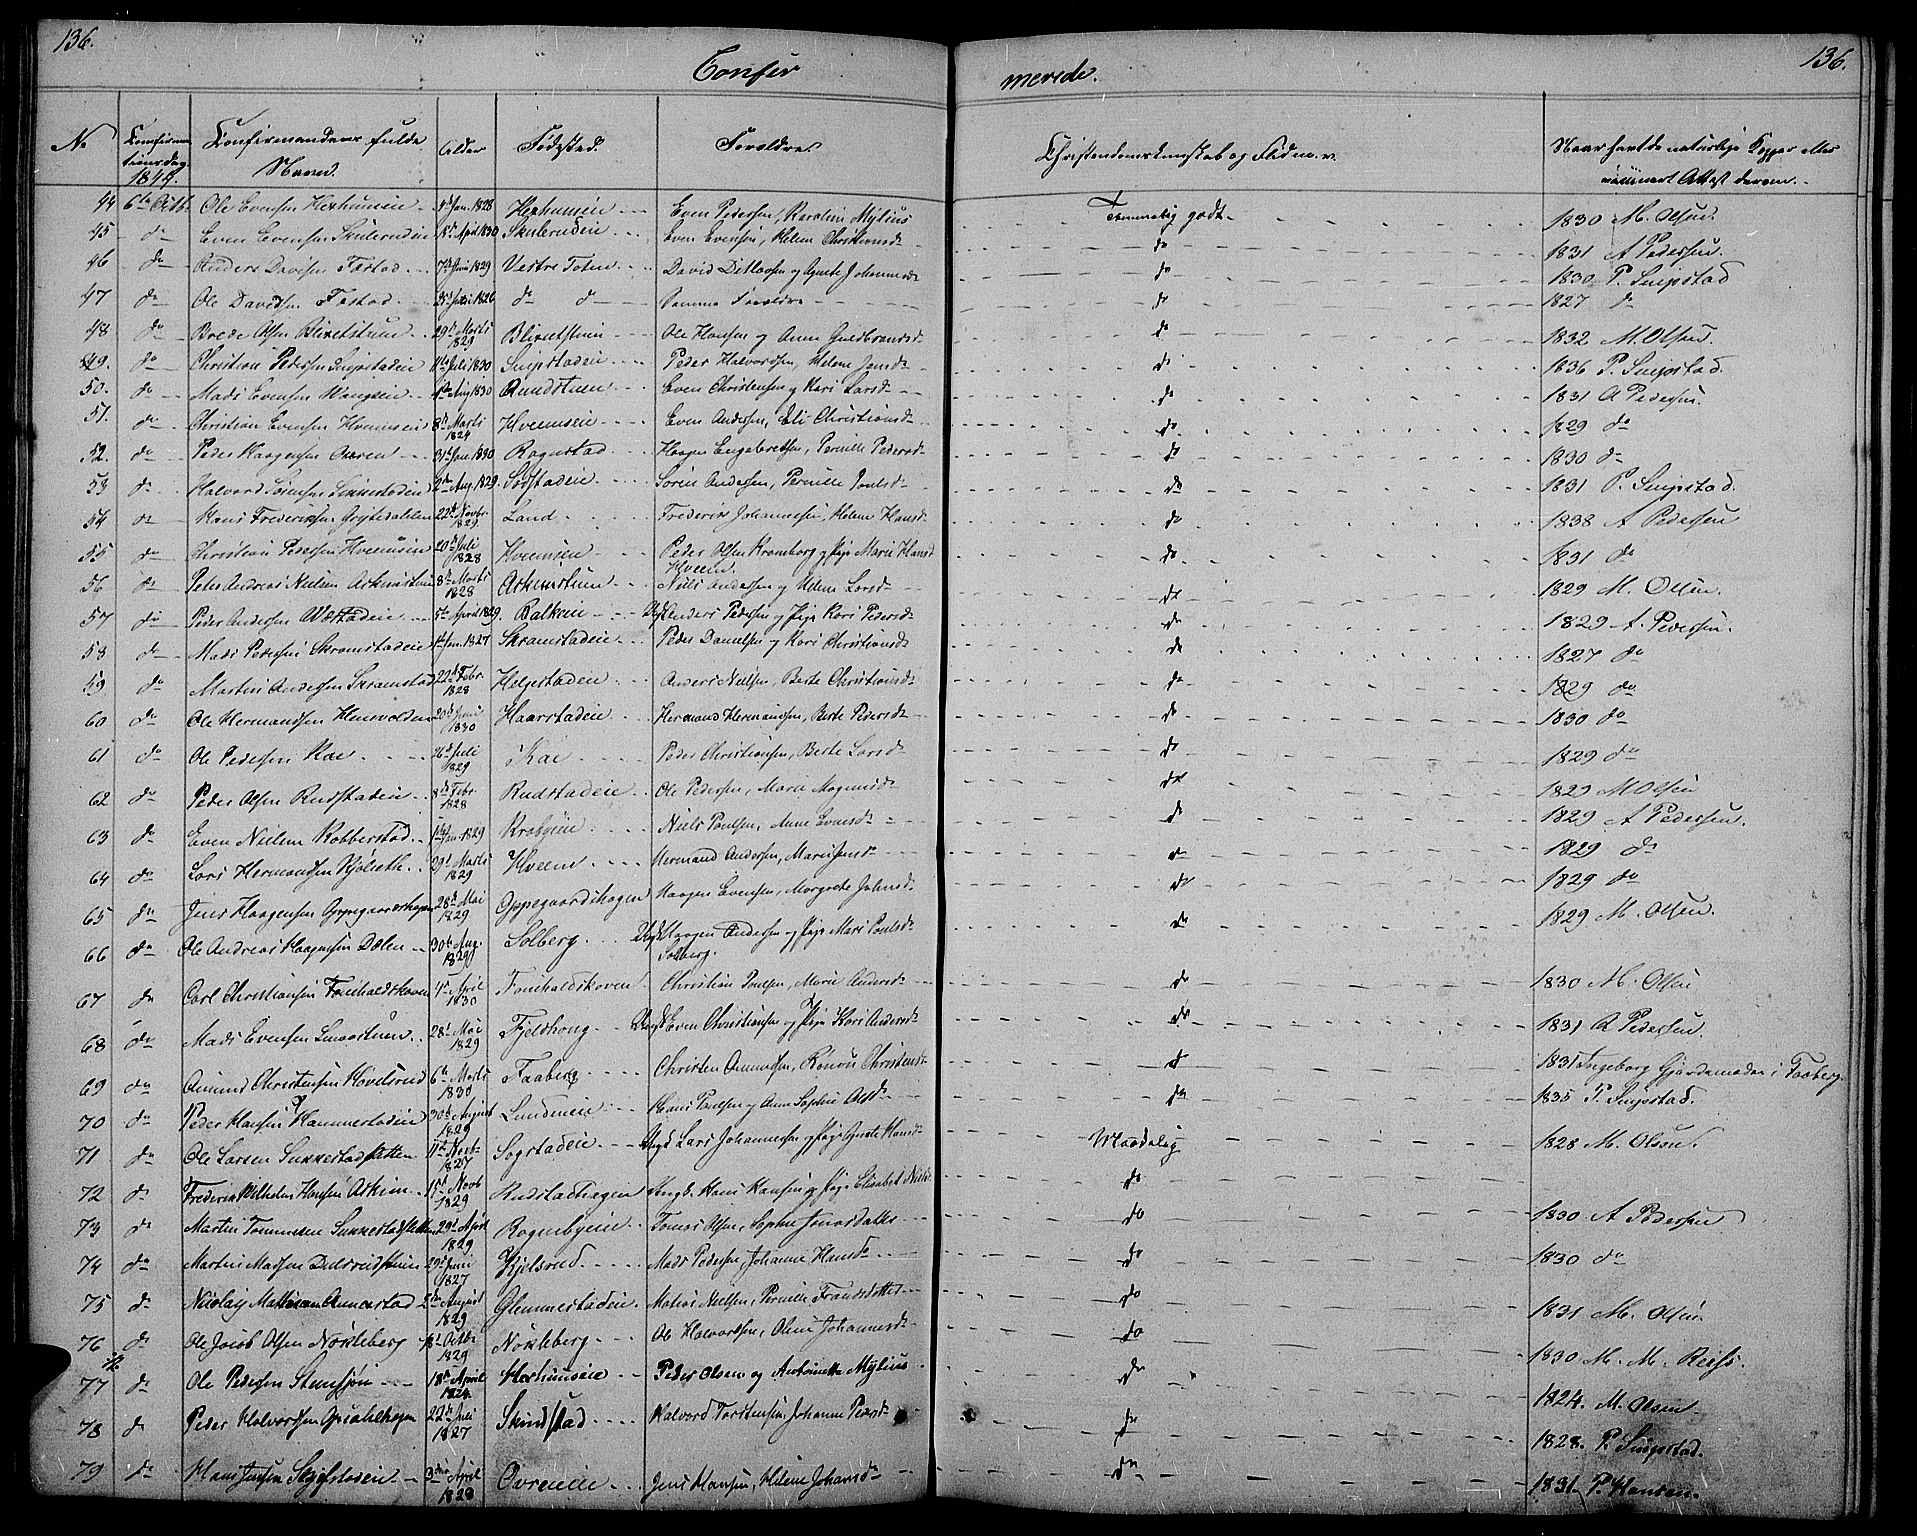 136.
Confir
merede.
136.
No
Confirma-
tionsdag.
1844.
Confirmandens fulde
Navn.
Alder
Fødsted.
Forældre.
Christendomskundskab og Flid m. v.
Naar havt de naturlige Kopper eller
vaccineret Attest derom.
44 6te Octb. Ole Evensen Hexhumseie 4d Jan. 1828 Hexhumseie Even Pedersen, Karoline Mylius Temmelig godt. 1830 M. Olsen.
45 do Even Evensen Skulerudeie April 1830 Skulerudeie Even Evensen, Helene Christiansd. do 1831 A Pedersen.
46 do Anders Davidsen Fastad 7de Juni 1829 Vestre Toten David Ditlevsen og Agnete Johannesd. do 1830 P. Snipstad
47 do Ole Davidsen Fastad 1826 do do Samme Forældre do 1827 do
48 do Brede Olsen 29d Marts 1829 Ole Hansen og Anne Guldbrandsd. do 1832 M. Olsen.
49. do Christian Pedersen Snipstadeie 11te Juli 1830 Snipstadeie Peder Halvordsen, Helene Jensd. do 1836 P. Snipstad.
50. do Mads Evensen Aug 1830 Rundstuen Even Christensen og Kari Larsd. do 1831 A Pedersen.
51. do Christian Evensen Hveemseie 8d Marts 1829 Hveemseie Even Andersen, Eli Christiansd. do 1829 do
52. do Peder Haagensen 31d Jan. 1830 Rognstad Haagen Engebretsen, Pernille Pedersd. do 1830 do
53 do Halvord Sørensen 2den Aug. 1829 Søren Andersen, Pernille Poulsd. do 1831 P. Snipstad.
54 do Hans Frederiksen 22d Novbr. 1829 Land Frederik Johannesen, Helene Hansd. do 1838 A Pedersen
55 do Christian Pedersen Hveemseie 20d Juli 1828 Hveemseie Peder Olsen Kronborg og Pige Marie Hansd. Hveem. do 1831 do
56 do Peter Andreas Nielsen 8d Marts 1828 Niels Andersen og Helene Larsd. do 1829 M. Olsen.
57 do Peder Andersen 5te April 1829. Balkeie Ungk. Anders Pedersen og Pige Kari Pedersd. do 1829 A. Pedersen.
58 do Mads Pedersen Skramstadeie Jan. 1827 Skramstadeie Peder Danielsen og Kari Christiansd. do 1827 do
59 do Martin Andersen Skramstad 22d Febr 1828 Helgestadeie Anders Nielsen, Berte Christiansd. do 1829 do
60 do Ole Hermandsen 20d Juni 1830 Haarstadeie Hermand Hermandsen, Berte Pedersd. do 1830 do
61 do Ole Pedersen Kae 26d Juli 1829 Kae Peder Christiansen, Berte Larsd. do 1829 do
62 do Peder Olsen Rudstadeie 8d Febr 1828 Rudstadeie Ole Pedersen, Marie Magnusd. do 1829 M Olsen
63 do Even Nielsen Robberstad Jan. 1829 Krabyeie Niels Poulsen, Anne Evensd. do 1829 A Pedersen.
64 do Lars Hermandsen 29d Marts 1829 Hveem Hermand Andersen, Marie Jensd. do 1829 do
65 do Jens Haagensen Oppegaardshagen 28d Mai 1829 Oppegaardshagen Haagen Evensen, Margrete Johnsd. do 1829 do
66 do Ole Andreas Haagensen Dælen 30d Aug. 1829 Solberg Ungk. Haagen Andersen og Pige Mari Poulsd. Solberg. do 1829 M. Olsen.
67 do Carl Christiansen 4d April 1830 Christian Poulsen, Marie Andersd. do 1830 M. Olsen
68 do Mads Evensen 28d Mai 1829 Fjeldhoug Ungk. Even Christiansen og Pige Kari Andersd. do 1831 A Pedersen
69 do Amund Christensen Hovelsrud 6te Marts 1830 Faaberg Christen Amundsen, Rønnou Christensd. do 1831 Ingeborg Gjordemoder i Faaberg.
70 do Peder Hansen Hammerstadeie 30d August 1829 Lundseie Hans Poulsen og Anne Sophie Olsd. do 1835 P. Snipstad.
71 do Ole Larsen Sukkestadsletten 11te Novb. 1827 Sogstadeie Ungk. Lars Johannesen og Pige Agnete Hansd. Maadelig 1828 M. Olsen.
72 do Frederik Wilhelm Hansen Askim 15d Novb 1829 Rudstadhagen Ungk. Hans Hansen og Pige Elisabet Nielsd. do
73 do Martin Tommesen Sukkestadsletten 29d April 1829 Rognebyeie Tomas Olsen, Sophie Jonasdatter do 1830 A Pedersen
74 do Martin Madsen 29d Juni 1827 Kjelsrud Mads Pedersen, Johanne Hansd. do 1830 do
75 do Nicolay Mathisen Annerstad 2den August 1829 Glemmestadeie Matias Nielsen, Pernille Frandsdatter do 1831 M. Olsen.
76 do Ole Jacob Olsen Nøkleberg 18d Octbr 1829 Nøkleberg Ole Halvordsen, Oline Johannesd. do 1830 M. M. Reiss.
77 do Ole Pedersen Steensjøn 18d April 1824 Hexhumseie Peder Olsen og Antonette Mylius do 1824. M. Olsen
78 do Peder Halvordsen 22de Juli 1827 Skindstad Halvord Torstensen, Johanne Pedersd. do 1828. P. Snipstad.
79 do Hans Jensen 3die April 1829 Ovreneie Jens Hansen, Helene Johansd. do 1831. P. Hansen.